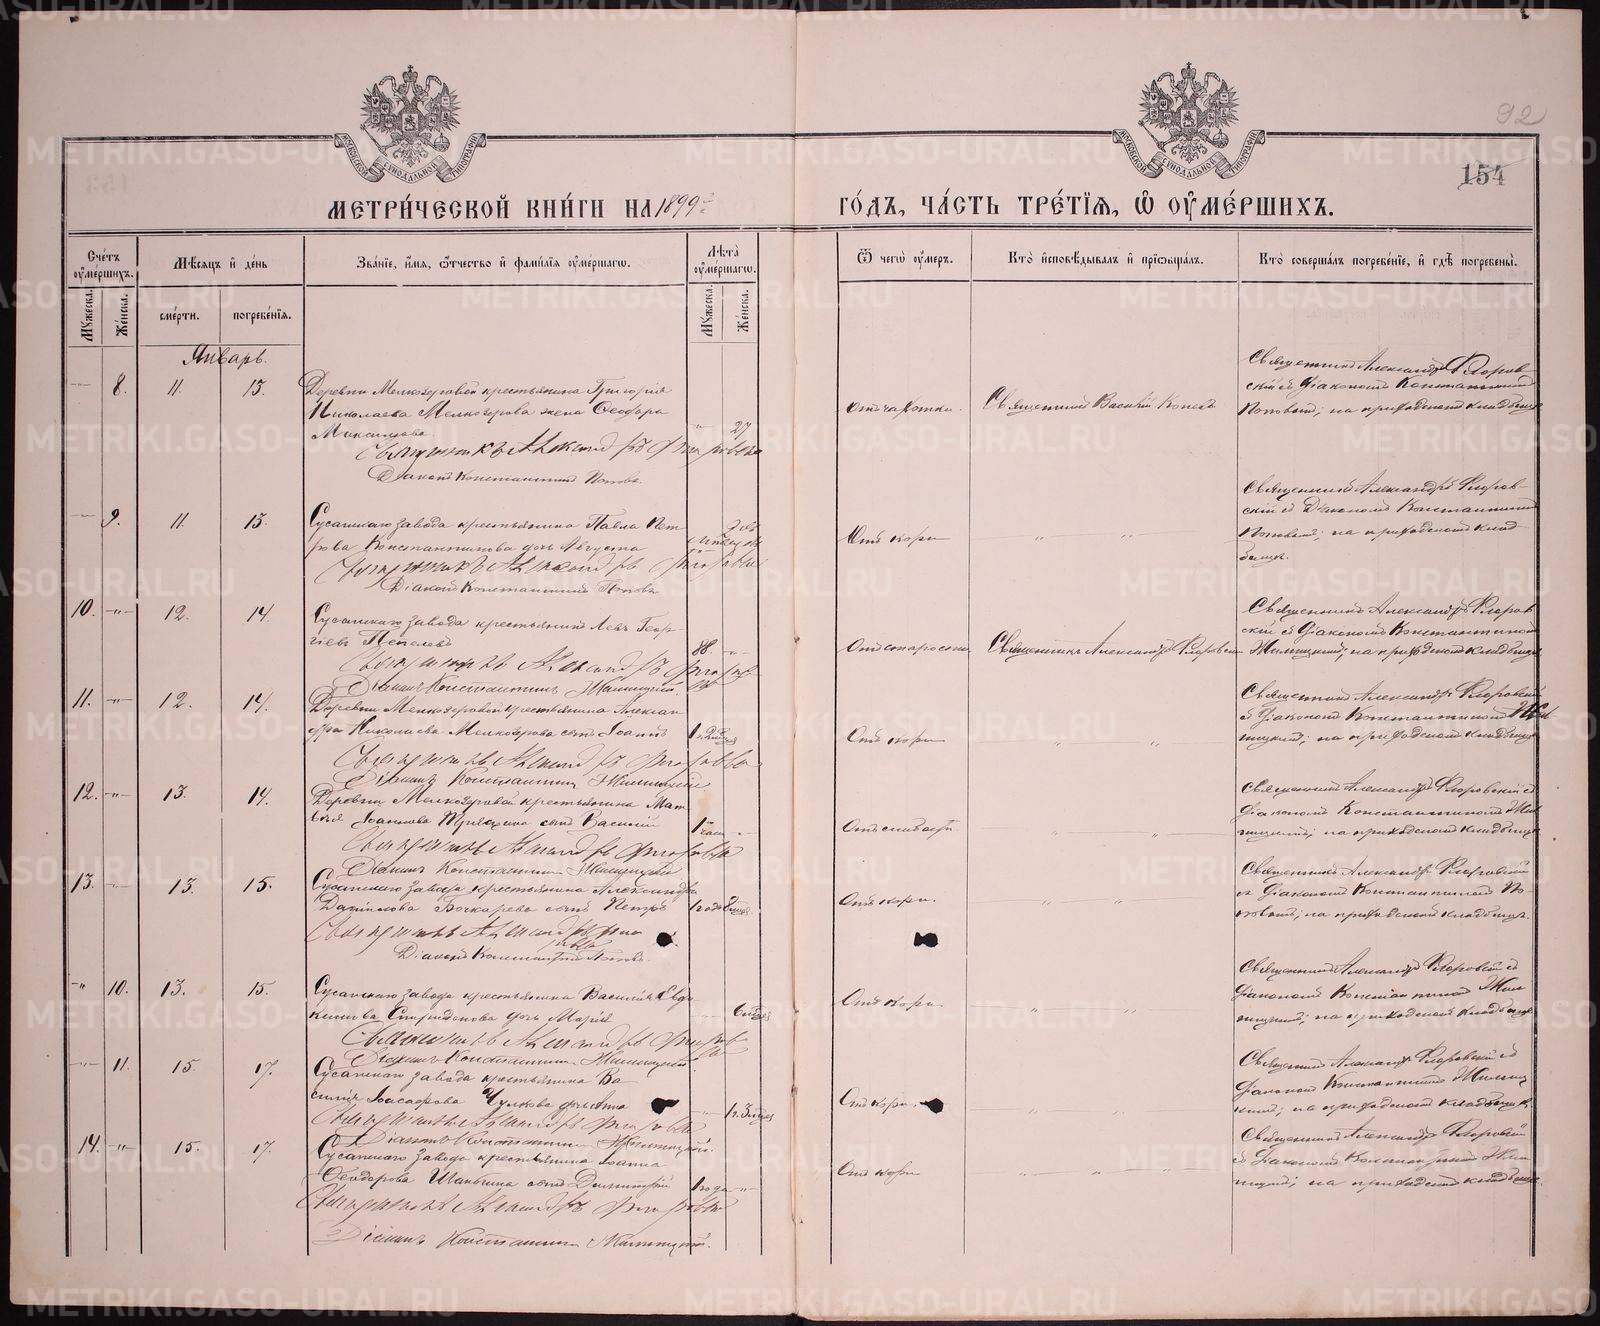 92
154
МЕТРИ́ЧЕСКОЙ КНИ́ГИ НА 1899 й ГО́ДЪ, ЧА́СТЬ ТРЕ́ТІЯ, Ѡ ОУ҆МЕ́РШИХЪ.
Сче́тъ оу҆ме́ршихъ.
Мꙋ́жеска.
Же́нска.
Мѣ́сяцъ и҆ де́нь
сме́рти.
погребе́нія.
Зва́ніе, и҆́мя, ѻ҆́тчество и҆ фами́лія оу҆ме́ршагѡ.
Лѣ́та оу҆ме́ршагѡ.
Мꙋ́жеска.
Же́нска.
Ѿ чегѡ̀ оу҆́меръ.
Кто̀ и҆сповѣ́дывалъ и҆ прїѡбща́лъ.
Кто̀ соверша́лъ погребе́ніе, и҆ гдѣ̀ погребены̀.
Январь.
8. 11. 13.
Деревни Мелкозеровой крестьянина Григорія
Николаева Мелкозерова жена Ѳеодора
Максимова
27
Священникъ Александръ Флоровскій
Діаконъ Константинъ Поповъ.
Отъ чахотки.
Священникъ Василій Коневъ
Священникъ Александръ Флоров-
скій съ діакономъ Константиномъ
Поповымъ; на приходскомъ кладбищѣ
9. 11. 13.
Сусанскаго завода крестьянина Павла Пет-
рова Константинова дочь Августа
Священникъ Александръ Флоровскій
Діаконъ Константинъ Поповъ
Отъ кори
Священникъ Александръ Флоров-
скій съ Діакономъ Константиномъ
Поповымъ; на приходскомъ клад-
бищѣ.
10. 12. 14.
Сусанскаго завода крестьянинъ Левъ Геор-
гіевъ
88.
Священникъ Александръ Флоровскій
Діаконъ Константинъ Жилицкій.
Отъ старости
Священникъ Александръ Флоровскій
Священникъ Александръ Флоров
скій съ діакономъ Константиномъ
Жилицкимъ; на приходскомъ кладбищѣ
11. 12. 14.
Деревни Мелкозеровой крестьянина Алексан
дра Николаева Мелкозерова сынъ Іоаннъ
Священникъ Александръ Флоровскій
Діаконъ Константинъ Жилицкій
Отъ кори
Священникъ Александръ Флоровскій
съ діакономъ Константиномъ Жи
лицкимъ; на приходскомъ кладбищѣ
12. 13. 14.
Деревни Мелкозеровой крестьянина Мат
вѣя Іоаннова сынъ Василій
Священникъ Александръ Флоровскій
Діаконъ Константинъ Жилицкій
Отъ слабости
Священникъ Александръ Флоровскій съ
діакономъ Константиномъ Жи
лицкимъ; на приходскомъ кладбищѣ
13. 13. 15.
Сусанскаго завода крестьянина Александра
Даніилова Бочкарева сынъ Петръ
Священникъ Александръ Флоровскій
Діаконъ Константинъ Поповъ.
Отъ кори.
Священникъ Александръ Флоровскій
съ діакономъ Константиномъ По-
повымъ; на приходскомъ кладбищѣ.
10. 13. 15.
Сусанскаго завода крестьянина Василія Евдо
кимова Спиридонова дочь Марія
Священникъ Александръ Флоровскій
Діаконъ Константинъ Жилицкій
Отъ кори
Священникъ Александръ Флоровскій съ
діакономъ Константиномъ Жил
ицкимъ; на приходскомъ кладбищѣ
11. 15 17.
Сусанскаго завода крестьянина Ва
силія Чулкова дочь
Священникъ Александръ Флоровскій
Діаконъ Константинъ Жилицкій.
Отъ кори.
Священникъ Александръ Флоровскій съ
діакономъ Константиномъ Жилиц
кимъ; на приходскомъ кладбищѣ.
14. 15. 17.
Сусанскаго завода крестьянина Іоанна
Ѳеодорова сынъ Димитрій
1 года
Священникъ Александръ Флоровскій
Діаконъ Константинъ Жилицкій.
Отъ кори
Священникъ Александръ Флоровскій
съ діакономъ Константиномъ Жил
ицкимъ; на приходскомъ кладбищѣ
METRIKI.GASO-URAL.RU